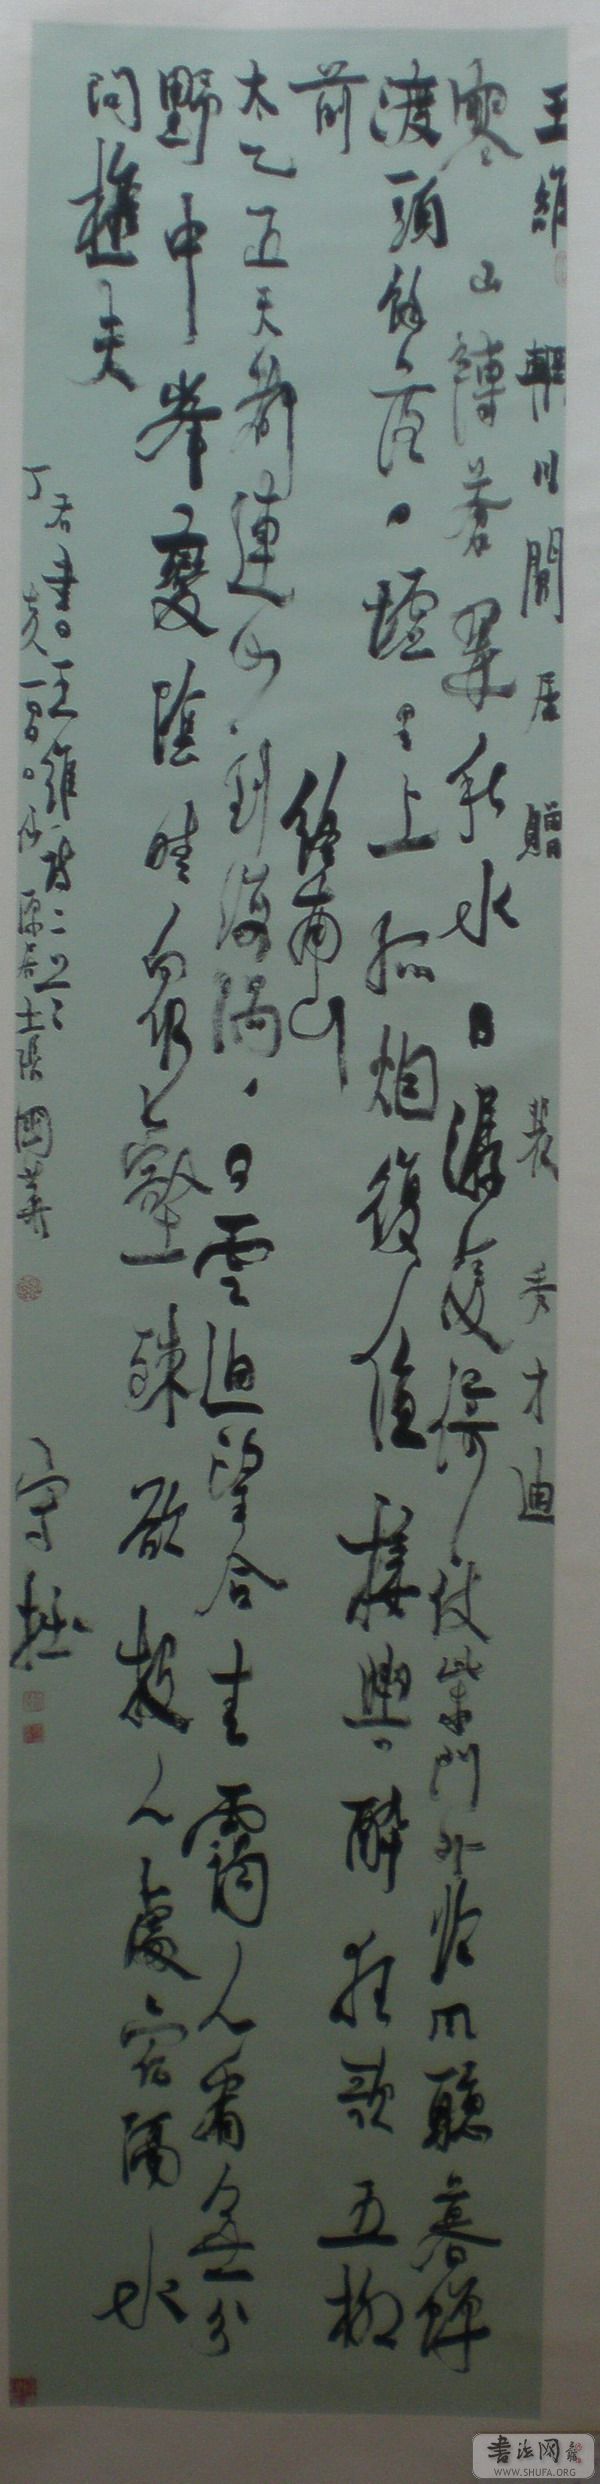 王維 輞川閒居 贈 裴秀才迪
寒山轉蒼翠秋水日潺湲倚仗柴門外临风聽暮蟬
渡頭餘落日墟里上孤烟復值接輿醉狂歌五柳
前
終南山
太乙近天都連山到海隅白雲迴望合青靄入看無分
野中峯變陰晴衆壑殊欲投人處宿隔水
問樵夫
丁亥
書王維詩二首
居士張國華
守拙
書法网
WWW.SHUFA.ORG